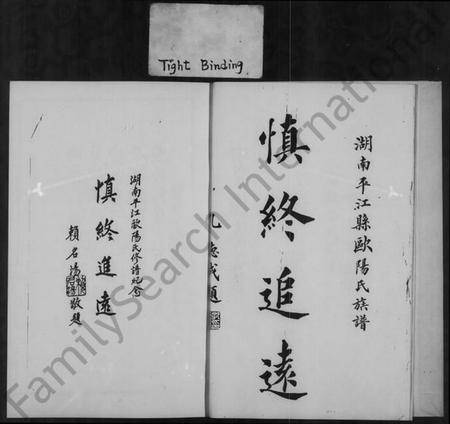 Tight Binding
湖南平江縣歐陽氏族譜
慎終追遠
孔德成題
湖南平江歐陽氏修譜紀念
慎終進遠
賴名湯
敬題
FamilySearch International